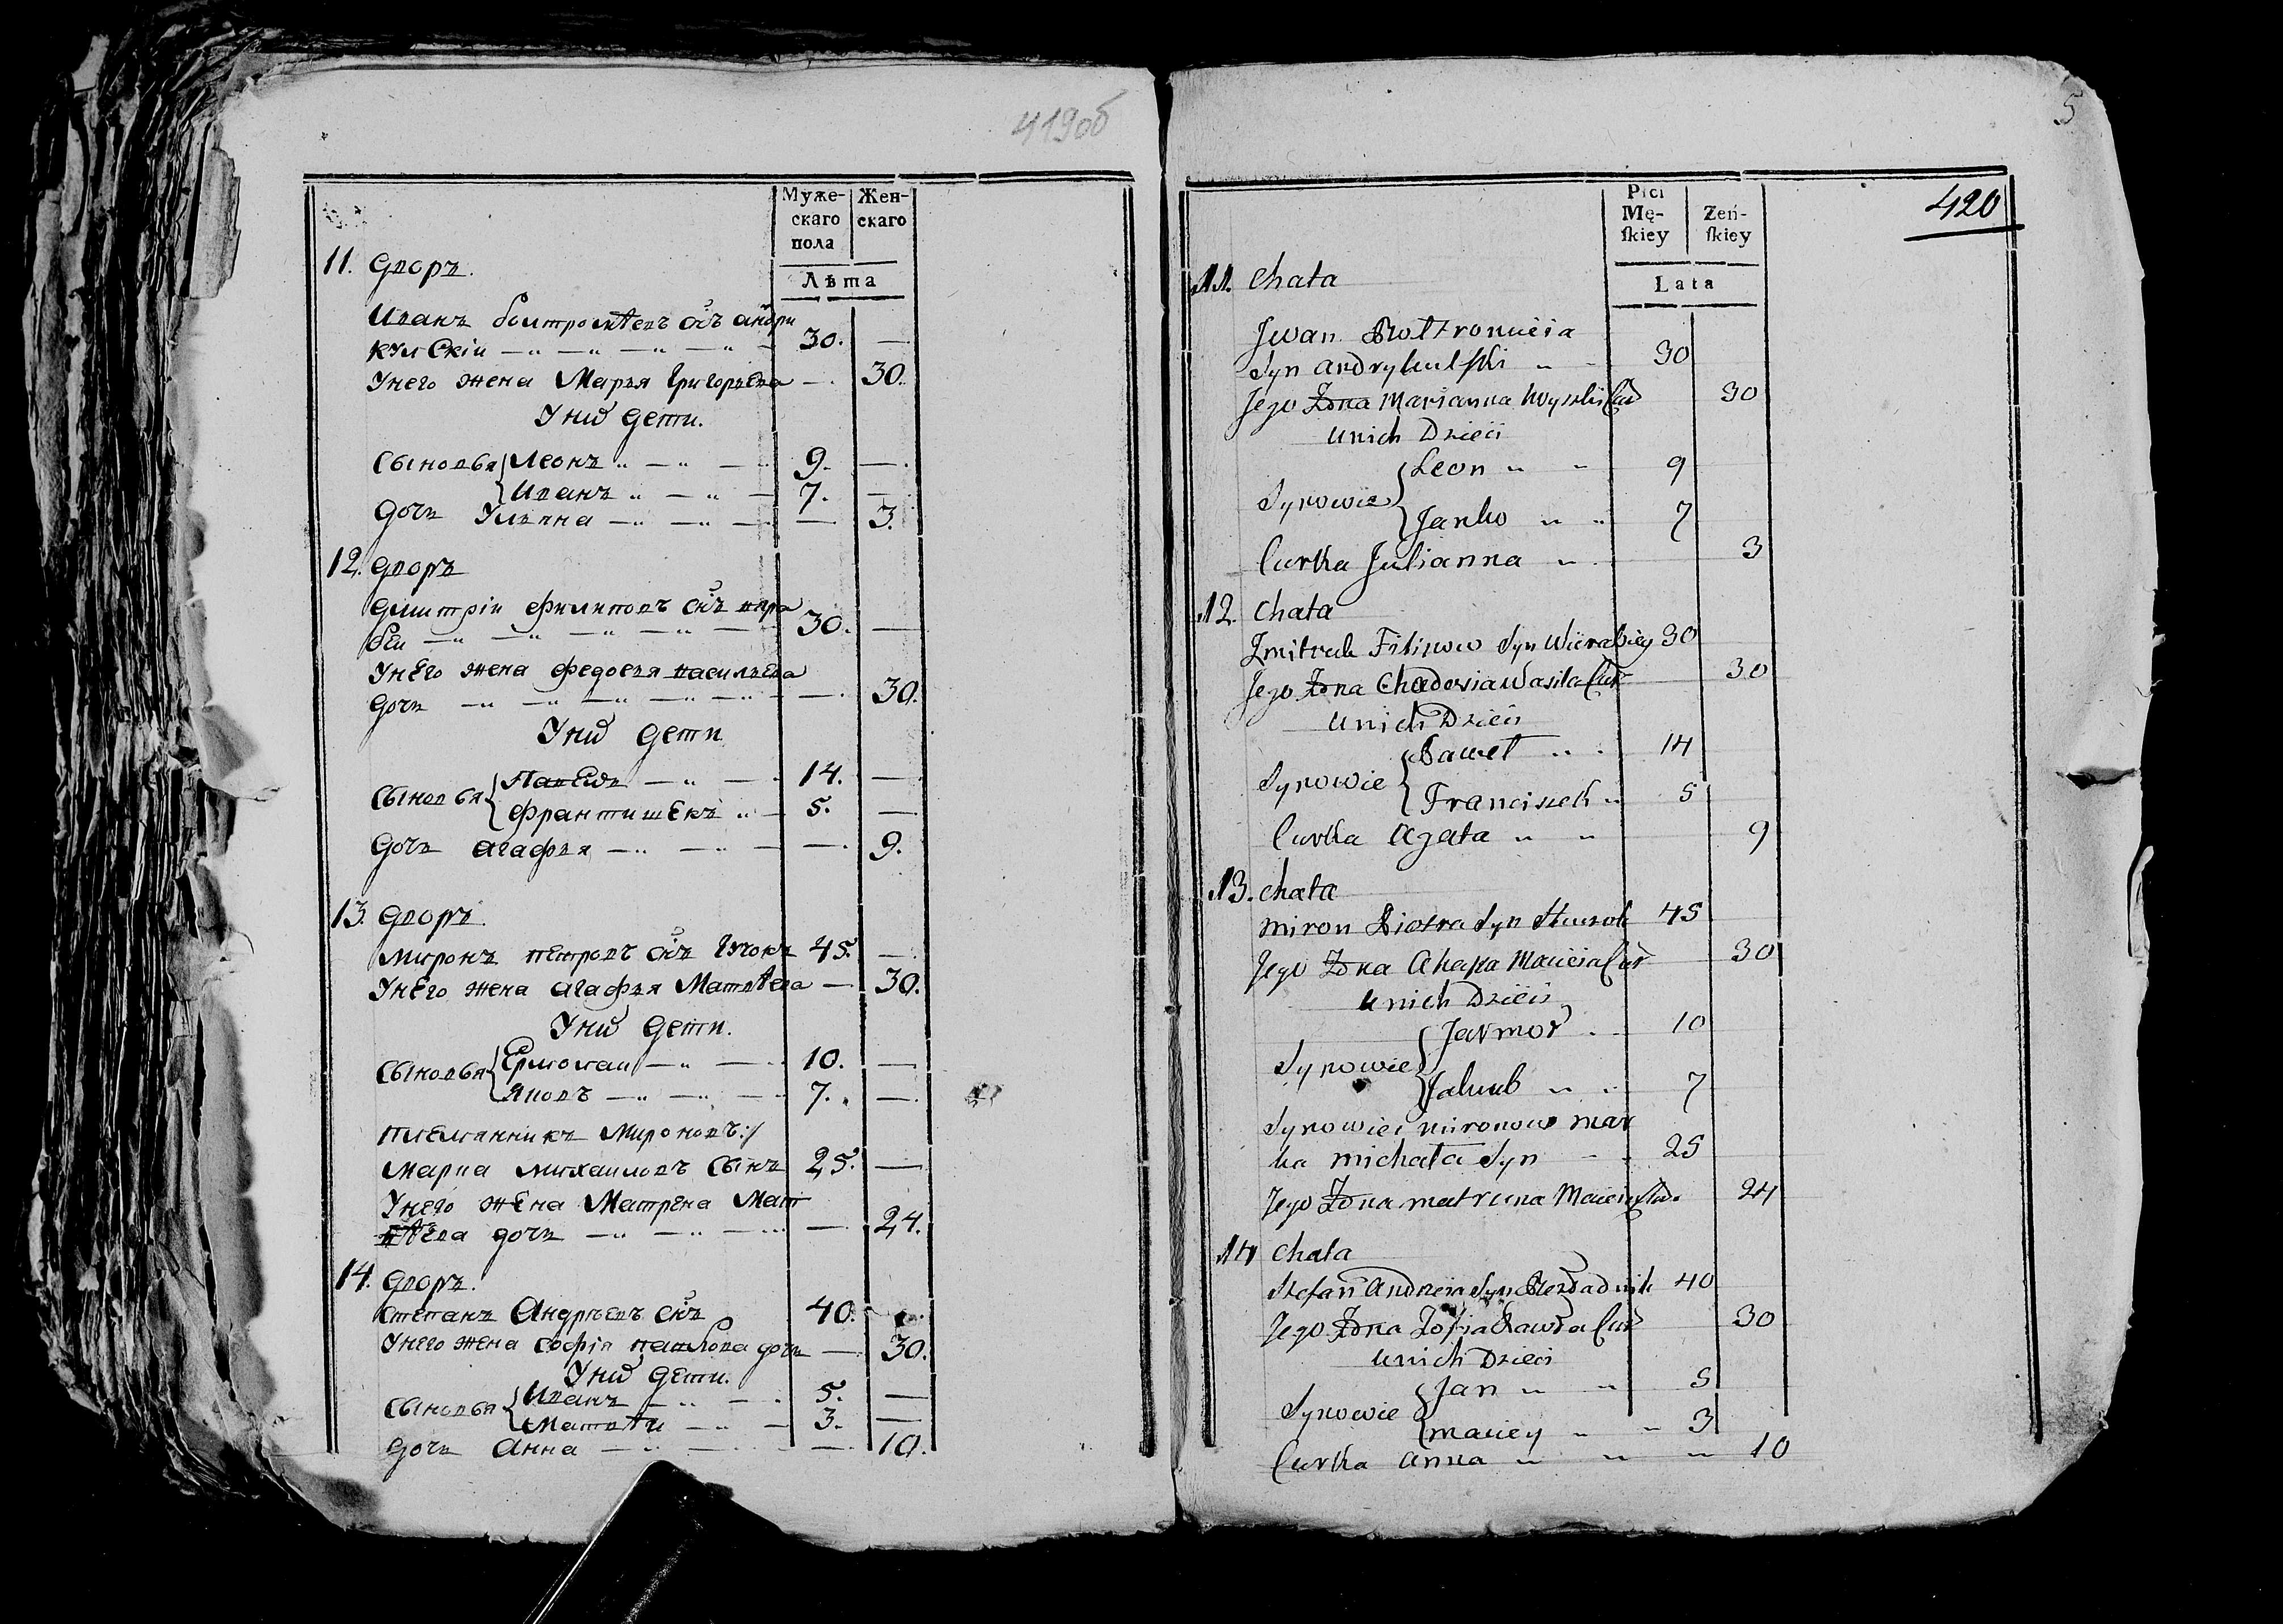 419об
Муже-
скаго
пола
Жен-
скаго
Лѣта
11. Дворъ.
Иванъ Болтромѣевъ снъ андри
кулскiи 30. —
Унего жена Марья Григорьева — 30.
Уних дети.
Сыновья Леонъ 9. —
Иванъ 7. —
Дочь Ульяна — 3.
12. Дворъ
Дмитрiи Филиповъ снъ вера
беи 30. —
Унего жена Федосья Васильева
Дочь — 30.
Уних дети
Сыновья Павелъ 14. —
Франтишекъ 5. —
Дочь Агафья — 9.
13. Дворъ.
Миронъ Петровъ снъ 45. —
Унего жена агафья Матвѣева — 30.
Уних дети.
Сыновья Ермолаи 10. —
Яковъ 7. —
Племянникъ Мироновъ:/
Михаиловъ Сынъ 25. —
Унего жена Матрена Мат
вѣева дочь — 24.
14. Дворъ.
Степанъ Андрѣевъ снъ 40.
Унего жена Софiя павлова дочь — 30.
Уних дети.
Сыновья Иванъ 5. —
Матвѣи 3. —
Дочь Анна — 10.
5
420
Płci
Mę-
ſkiey
Zeń-
ſkiey
Lata
11. Chata
Jwan Boltromieia
Syn andrykulſki 30
Jego Żona Marianna Cur 30
unich Dzieci
Synowie Leon 9
Janko 7
Curka Julianna 3
12. Chata
Zmitruk Filipow Syn Wierabiey 30
Jego Żona Chodosia Wasila Cur 30
unich Dzieci
Synowie Paweł 14
Franciszek 5
Curka Agata 9
13. Chata
Miron Piotra Syn 45
Jego Żona Ahapa Macieia Cur 30
unich Dzieci
Synowie Jarmoł 10
Jakub 7
Synowiec mironow mar
ka michała Syn 25
Jego Żona matruna Macieia Cur. 24
14 Chata
Stefan Andrzeia Syn 40
Jego Żona Zofia Pawła Cur 30
unich Dzieci
Synowie Jan 5
maciey 3
Curka anna 10